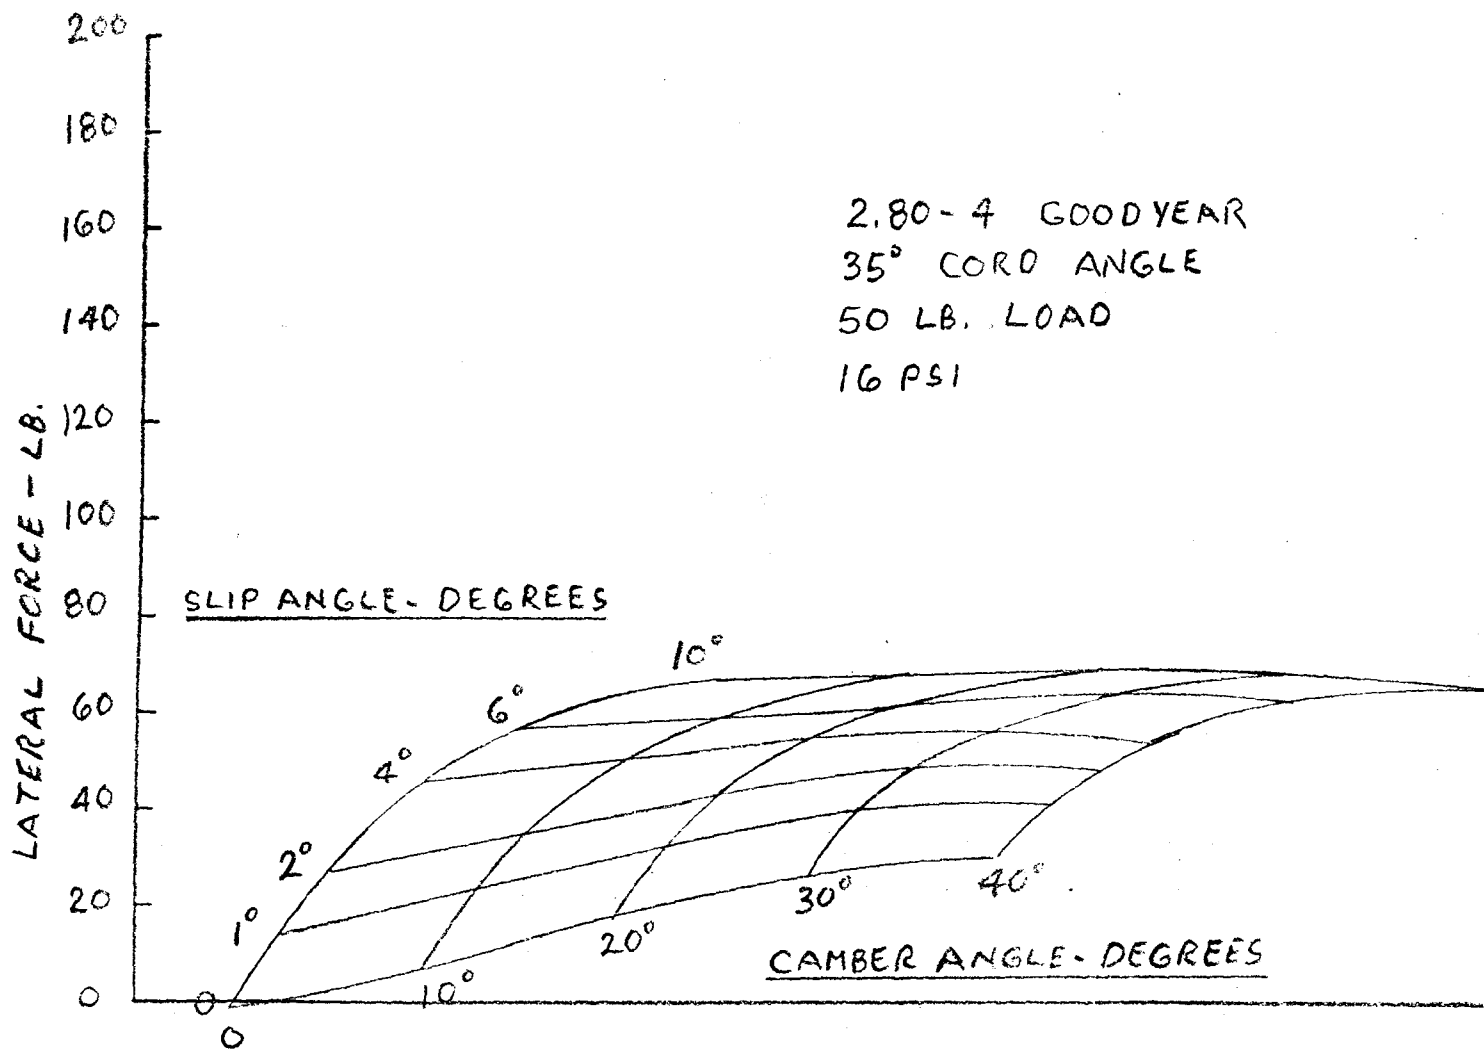 200
180
160
140
120
100
80
60
40
20
0
LATERAL FORCE - LB.
2.80-4 GOODYEAR
35° CORD ANGLE
50 LB. LOAD
16 PSI
SLIP ANGLE- DEGREES
10°
6°
4°
2°
1°
0
0
10°
20°
30°
40°
CAMBER ANGLE- DEGREES